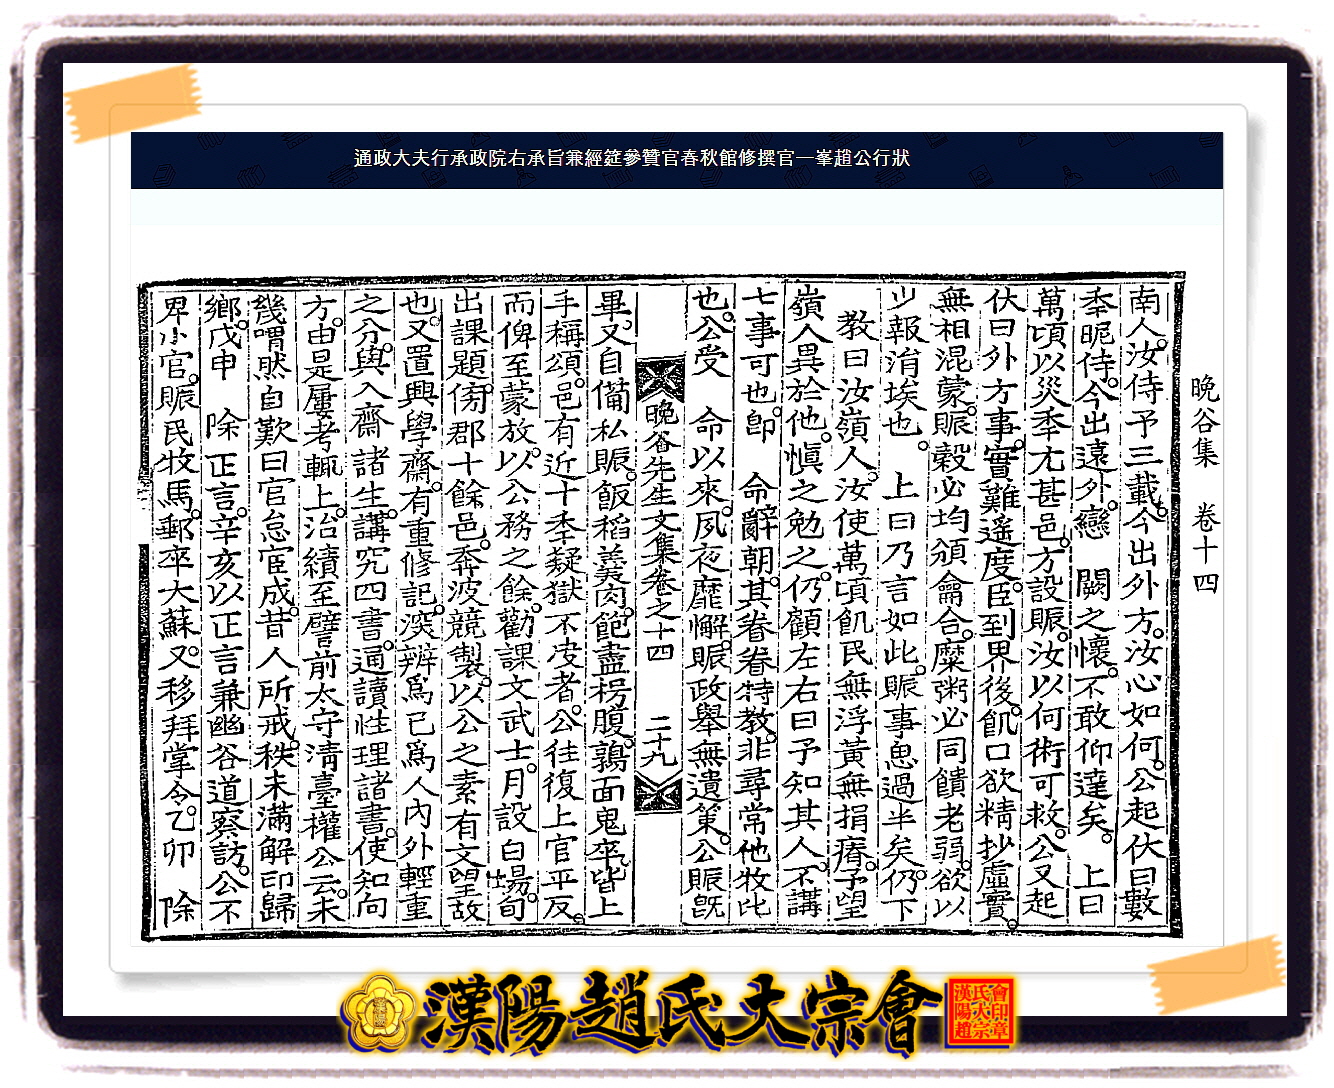 通政大夫行承政院右承旨兼經筵參贊官春秋館修撰官一峯趙公行狀
晩谷集 卷十四
南人。汝侍予三載。今出外方。汝心如何。公起伏曰數
秊昵侍。今出遠外。戀 闕之懷。不敢仰達矣。 上曰
萬頃以災秊尤甚邑。方設賑。汝以何術可救。公又起
伏曰外方事。實難遙度。臣到界後。飢口欲精抄虛實。
無相混蒙。賑穀必均頒龠合。糜粥必同饋老弱。欲以
少報涓埃也。 上曰乃言如此。賑事思過半矣。仍下
敎曰汝嶺人。汝使萬頃飢民無浮黃無捐瘠。予望
嶺人異於他。愼之勉之。仍顧左右曰予知其人。不講
七事可也。卽 命辭朝。其眷眷特敎。非尋常他牧比
也。公受 命以來。夙夜靡懈。賑政擧無遺策。公賑旣
晩谷先生文集卷之十四 二十九
畢。又自備私賑。飯稻羹肉。飽盡枵腹。鶉面鬼卒。皆上
手稱頌。邑有近十秊疑獄不決者。公往復上官平反。
而俾至蒙放。以公務之餘。勸課文武士。月設白場。旬
出課題。傍郡十餘邑。奔波競製。以公之素有文望故
也。又置興學齋。有重修記。深辨爲已爲人內外輕重
之分。與入齋諸生。講究四書。通讀性理諸書。使知向
方。由是屢考輒上。治績至譬前太守淸臺權公云。未
幾喟然自歎曰官怠宦成。昔人所戒。秩未滿解印歸
鄕。戊申 除正言。辛亥以正言兼幽谷道察訪。公不
卑小官。賑民牧馬。郵卒大蘇。又移拜掌令。乙卯 除
漢陽趙氏大宗會
漢陽趙氏大宗會印章